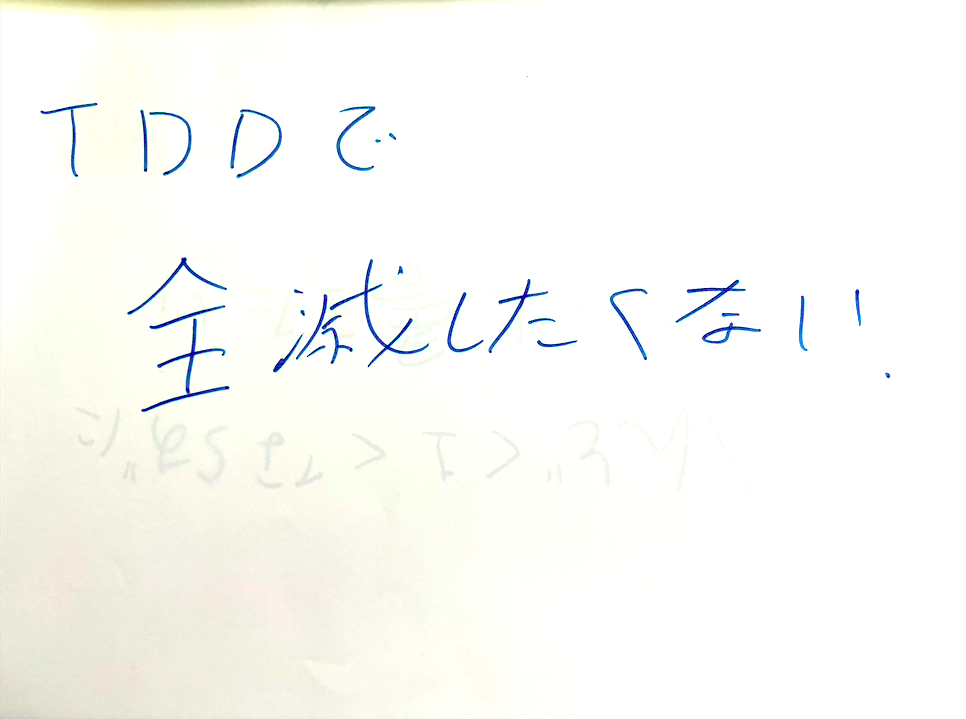 TDDで
全滅したくない!